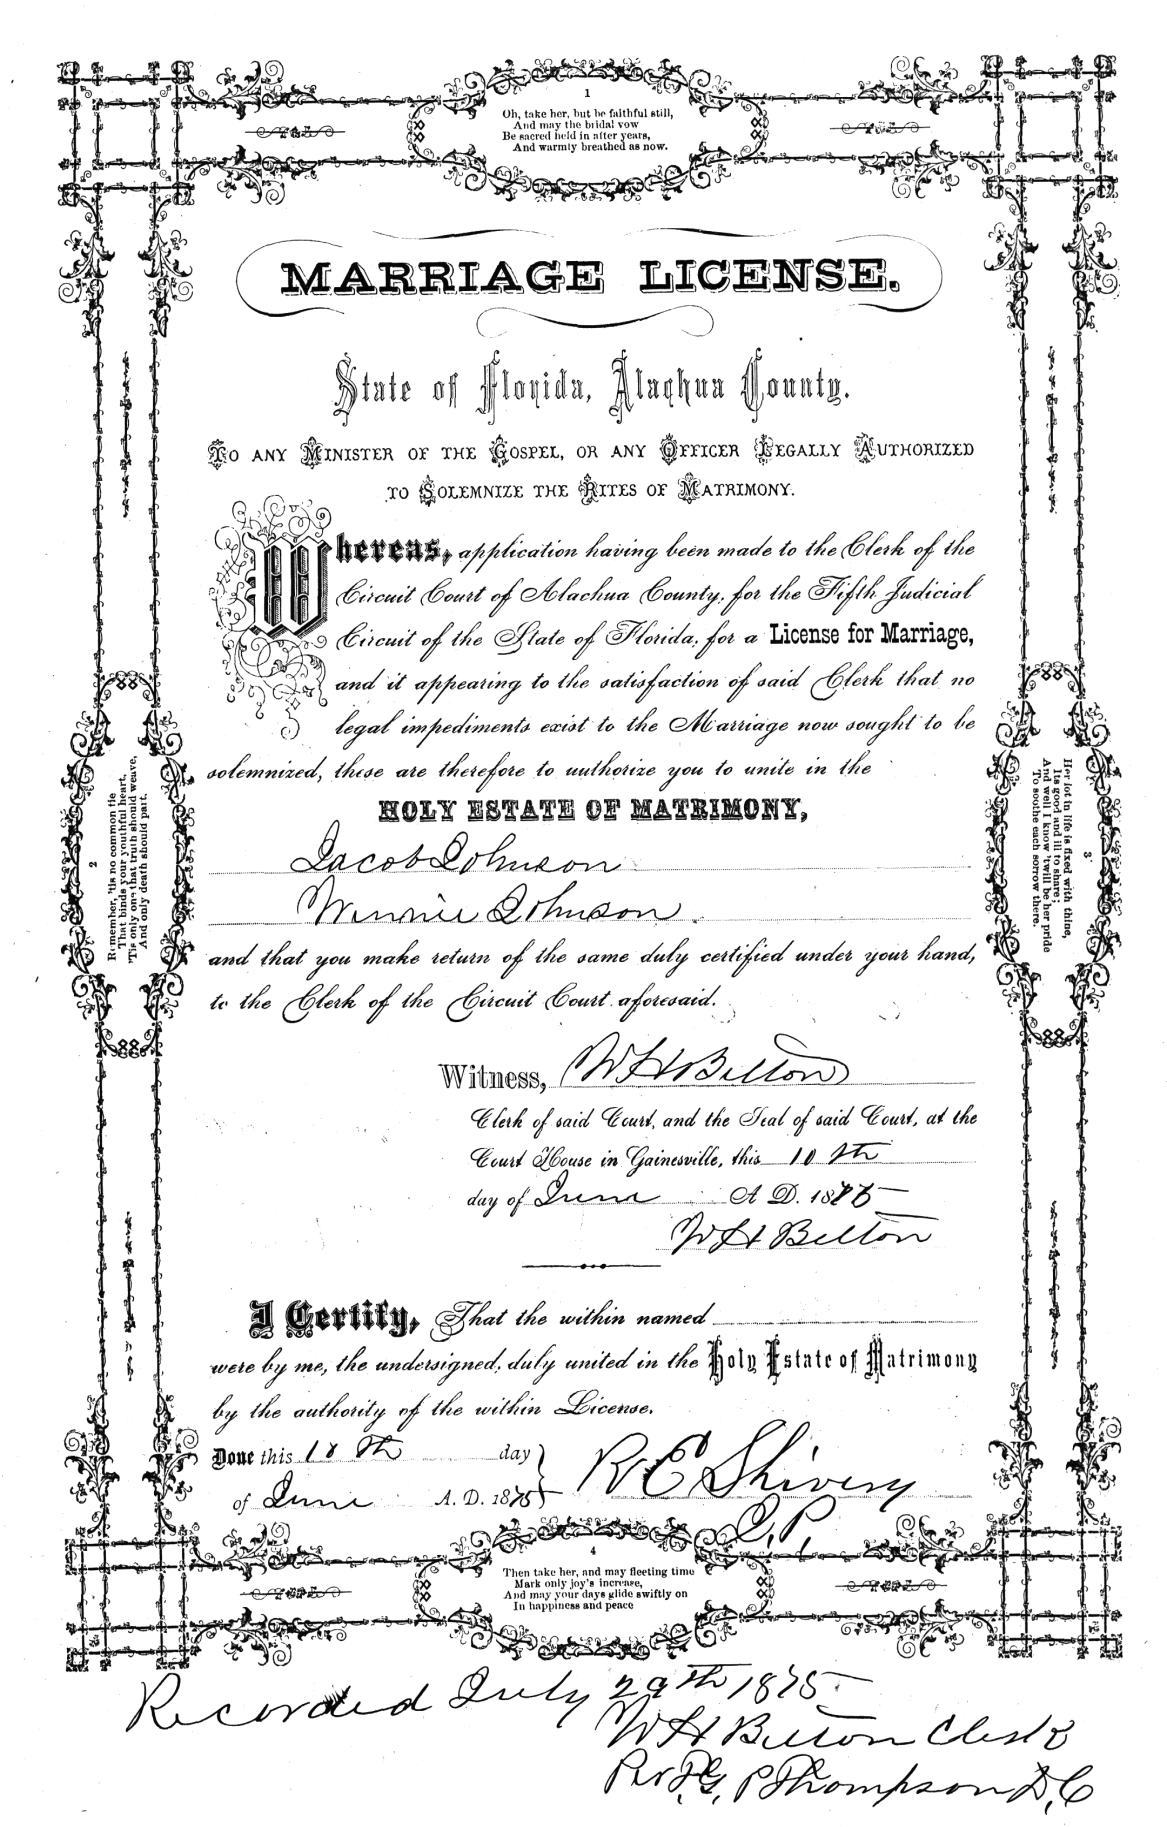 1
Oh, take her, but be faithful still,
And may the bridal vow
Be sacred held in after years,
And warmly breathed as now.
MARRIAGE LICENSE.
State of Florida, Alachua County.
TO ANY MINISTER OF THE GOSPEL, OR ANY OFFICER LEGALLY AUTHORIZED
TO SOLEMNIZE THE RITES OF MATRIMONY.
Whereas, application having been made to the Clerk of the
Circuit Court of Alachua County, for the Fifth Judicial
Circuit of the State of Florida, for a License for Marriage,
and it appearing to the satisfaction of said Clerk that no
legal impediments exist to the Marriage now sought to be
solemnized, these are therefore to authorize you to unite in the
HOLY ESTATE OF MATRIMONY,
Jacob Johnson
Winnie Johnson
and that you make return of the same duly certified under your hand,
to the Clerk of the Circuit Court aforesaid.
Witness, W H Belton
Clerk of said Court, and the Seal of said Court, at the
Court House in Gainesville, this 10 th
day of June A D. 1875
W H Belton
I Certify, That the within named
were by me, the undersigned, duly united in the Holy Estate of Matrimony
by the authority of the within License.
Done this 10 th day
of June A. D. 1875
R E Shivery
J. P.
2
Remember, 'tis no common tie
That binds your youthful heart,
'Tis only one that truth should weave,
And only death should part.
3
Her lot in life is fixed with thine,
Its good and ill to share;
And well I know 'twill be her pride
To soothe each sorrow there.
4
Then take her, and may fleeting time
Mark only joy's increase,
And may your days glide swiftly on
In happiness and peace
Recorded July 29th 1875
W H Belton Clerk
Per F. G. P Thompson D, C